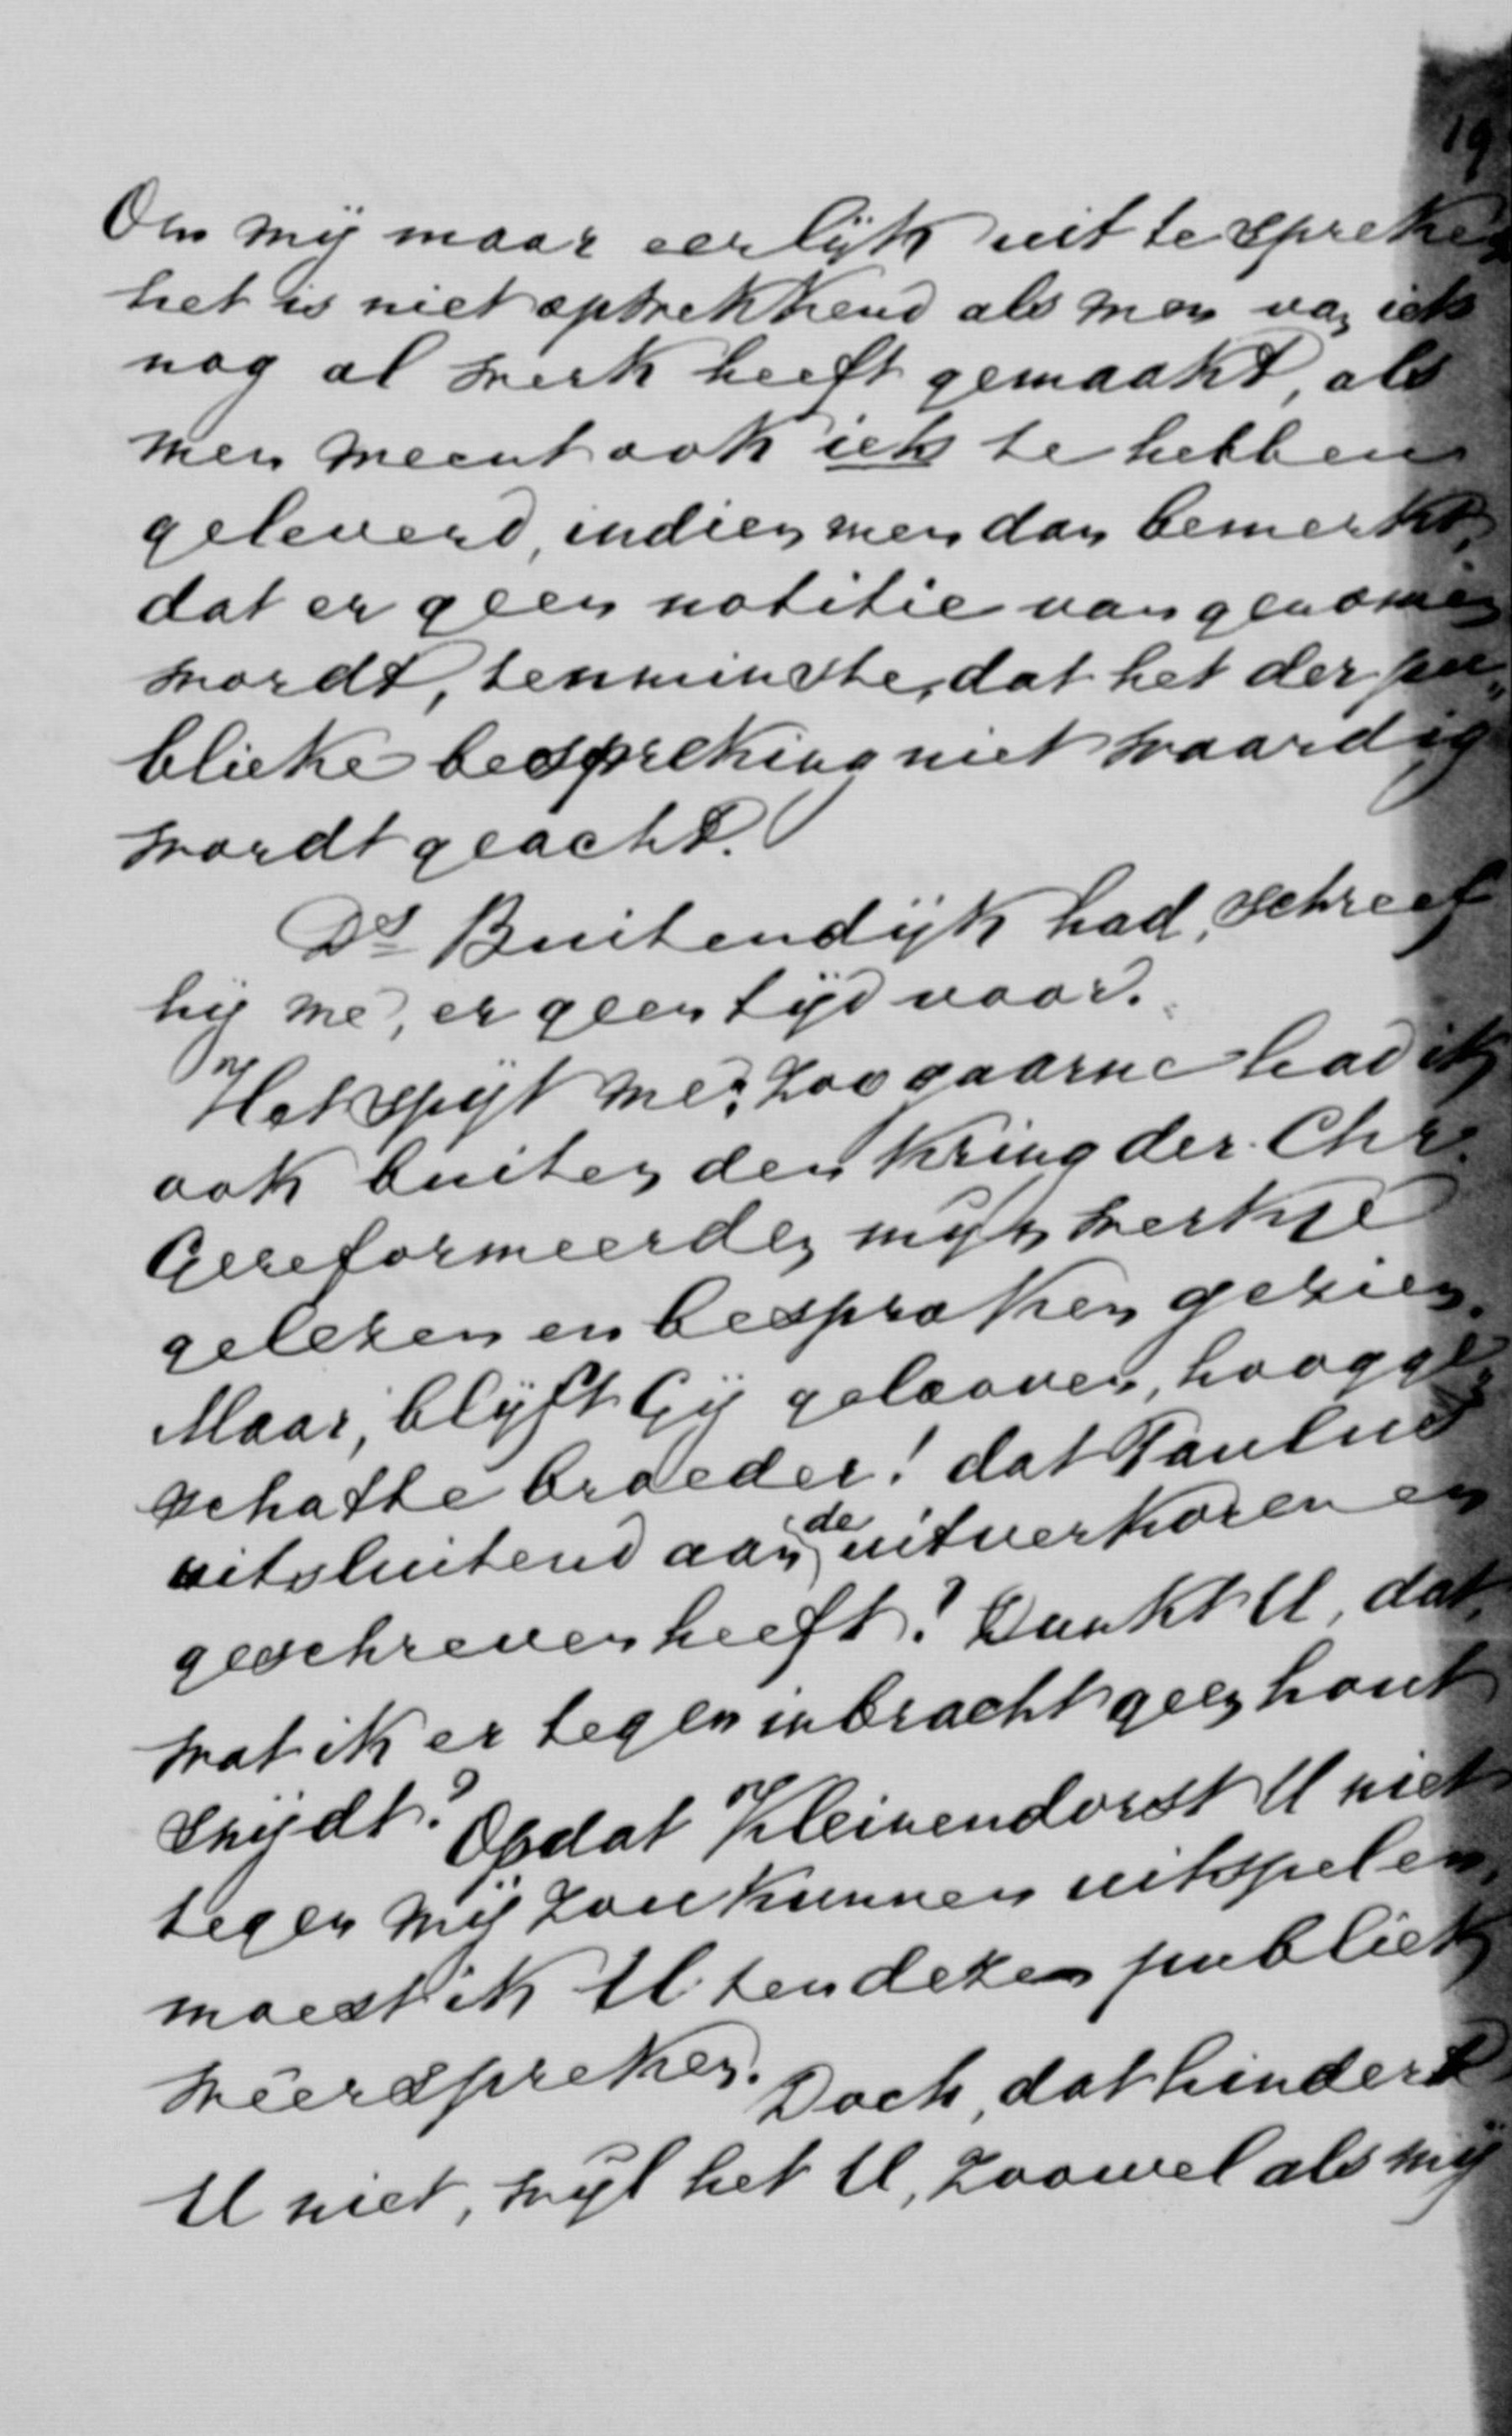 19
Om mij maar eerlijk uit te spreken
het is niet optrekkend als men van iets
nog al werk heeft gemaakt, als
men meent ook iets te hebben
geleverd, indien men dan bemerkt,
dat er geen notitie van genomen
wordt, tenminste, dat het der pu„
blieke bespreking niet waardig
wordt geacht.
Ds Buitendijk had, schreef
hij me, er geen tijd voor.
Het spijt me; zoo gaarne had ik
ook buiten den kring der Chr.
Gereformeerden mijn werkje
gelezen en besproken gezien.
Maar, blijft Gij gelooven, hoogge„
schatte broeder! dat Paulus
uitsluitend aan de uitverkorenen
geschreven heeft? Dunkt U, dat,
wat ik er tegen inbracht geen hout
snijdt? Opdat Kleinendorst U niet
tegen mij zou kunnen uitspelen,
moest ik U ten dezen publiek
wêerspreken. Doch, dat hindert
U niet, wijl het U, zoowel als mij